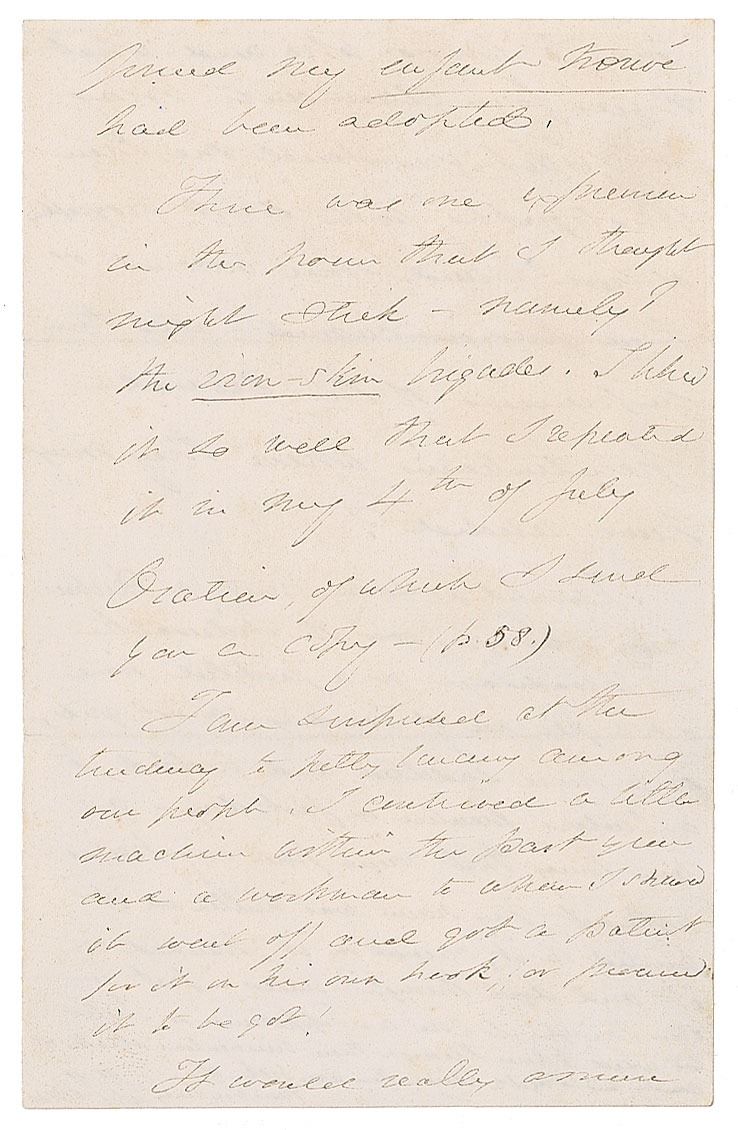 found my enfant trouvé
had been adopted.
There was one expression
in the poem that I thought
might stick – namely
the iron-skin brigades. I liked
it so well that I repeated
it in my 4th of July
Oration, of which I send
you a copy – (p. 58.)
I am surprised at the
tendency to petty larceny among
our people. I contrived a little
machine within the past year
and a workman to whom I showed
it went off and got a patent
for it on his own hook, or procured
it to be got!
It would really amuse